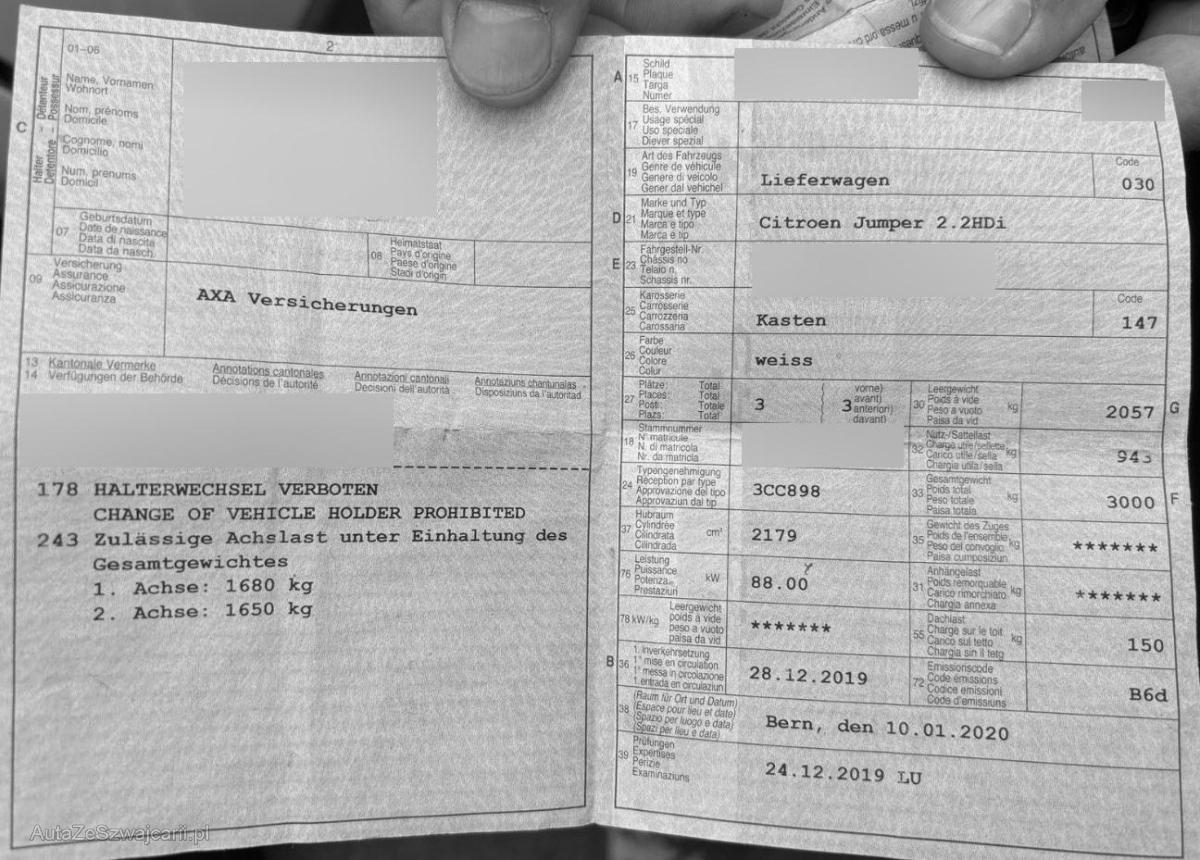 2
01-06
Name, Vornamen
Wohnort
Nom, prénoms
Domicile
Cognome, nomi
Domicilio
Num, prenums
Domicil
C
Halter - Détenteur
Detentore - Possessur
07
Geburtsdatum
Date de naissance
Data di nascita
Data da nasch.
08
Heimatstaat
Pays d'origine
Paese d'origine
Stadi d'origin
09
Versicherung
Assurance
Assicurazione
Assicuranza
AXA Versicherungen
13 Kantonale Vermerke
14 Verfügungen der Behörde
Annotations cantonales
Décisions de l'autorité
Annotazioni cantonali
Decisioni dell'autorità
Annotaziuns chantunalas
Disposiziuns da l'autoritad
178 HALTERWECHSEL VERBOTEN
CHANGE OF VEHICLE HOLDER PROHIBITED
243 Zulässige Achslast unter Einhaltung des
Gesamtgewichtes
1. Achse: 1680 kg
2. Achse: 1650 kg
A 15
Schild
Plaque
Targa
Numer
17
Bes. Verwendung
Usage spécial
Uso speciale
Diever spezial
19
Art des Fahrzeugs
Genre de véhicule
Genere di veicolo
Gener dal vehichel
Lieferwagen
Code
030
D 21
Marke und Typ
Marque et type
Marca e tipo
Marca e tip
Citroen Jumper 2.2HDi
E 23
Fahrgestell-Nr.
Châssis no
Telaio n.
Schassis nr.
25
Karosserie
Carrosserie
Carrozzeria
Carossaria
Kasten
Code
147
26
Farbe
Couleur
Colore
Colur
weiss
27
Plätze: Total
Places: Total
Posti: Totale
Plazs: Total
3
3
vorne)
avant)
anteriori)
davant)
30
Leergewicht
Poids à vide
Peso a vuoto
Paisa da vid
kg
2057
G
18
Stammnummer
N° matricule
N. di matricola
Nr. da matricla
32
Nutz-/Sattellast
Charge utile/sellette
Carico utile/sella
Chargia utila/sella
kg
943
24
Typengenehmigung
Réception par type
Approvazione del tipo
Approvaziun dal tip
3CC898
33
Gesamtgewicht
Poids total
Peso totale
Paisa totala
kg
3000
F
37
Hubraum
Cylindrée
Cilindrata
Cilindrada
cm³
2179
35
Gewicht des Zuges
Poids de l'ensemble
Peso del convoglio
Paisa cumposiziun
kg
*******
76
Leistung
Puissance
Potenza
Prestaziun
kW
88.00
31
Anhängelast
Poids remorquable
Carico rimorchiato
Chargia annexa
kg
*******
78 kW/kg
Leergewicht
poids à vide
peso a vuoto
paisa da vid
*******
55
Dachlast
Charge sur le toit
Carico sul tetto
Chargia sin il tetg
kg
150
B 36
1. Inverkehrsetzung
1re mise en circulation
1a messa in circolazione
1. entrada en circulaziun
28.12.2019
72
Emissionscode
Code émissions
Codice emissioni
Code d'emissiuns
B6d
38
(Raum für Ort und Datum)
(Espace pour lieu et date)
(Spazio per luogo e data)
(Spazi per lieu e data)
Bern, den 10.01.2020
39
Prüfungen
Expertises
Perizie
Examinaziuns
24.12.2019 LU
AutaZeSzwajcarii.pl